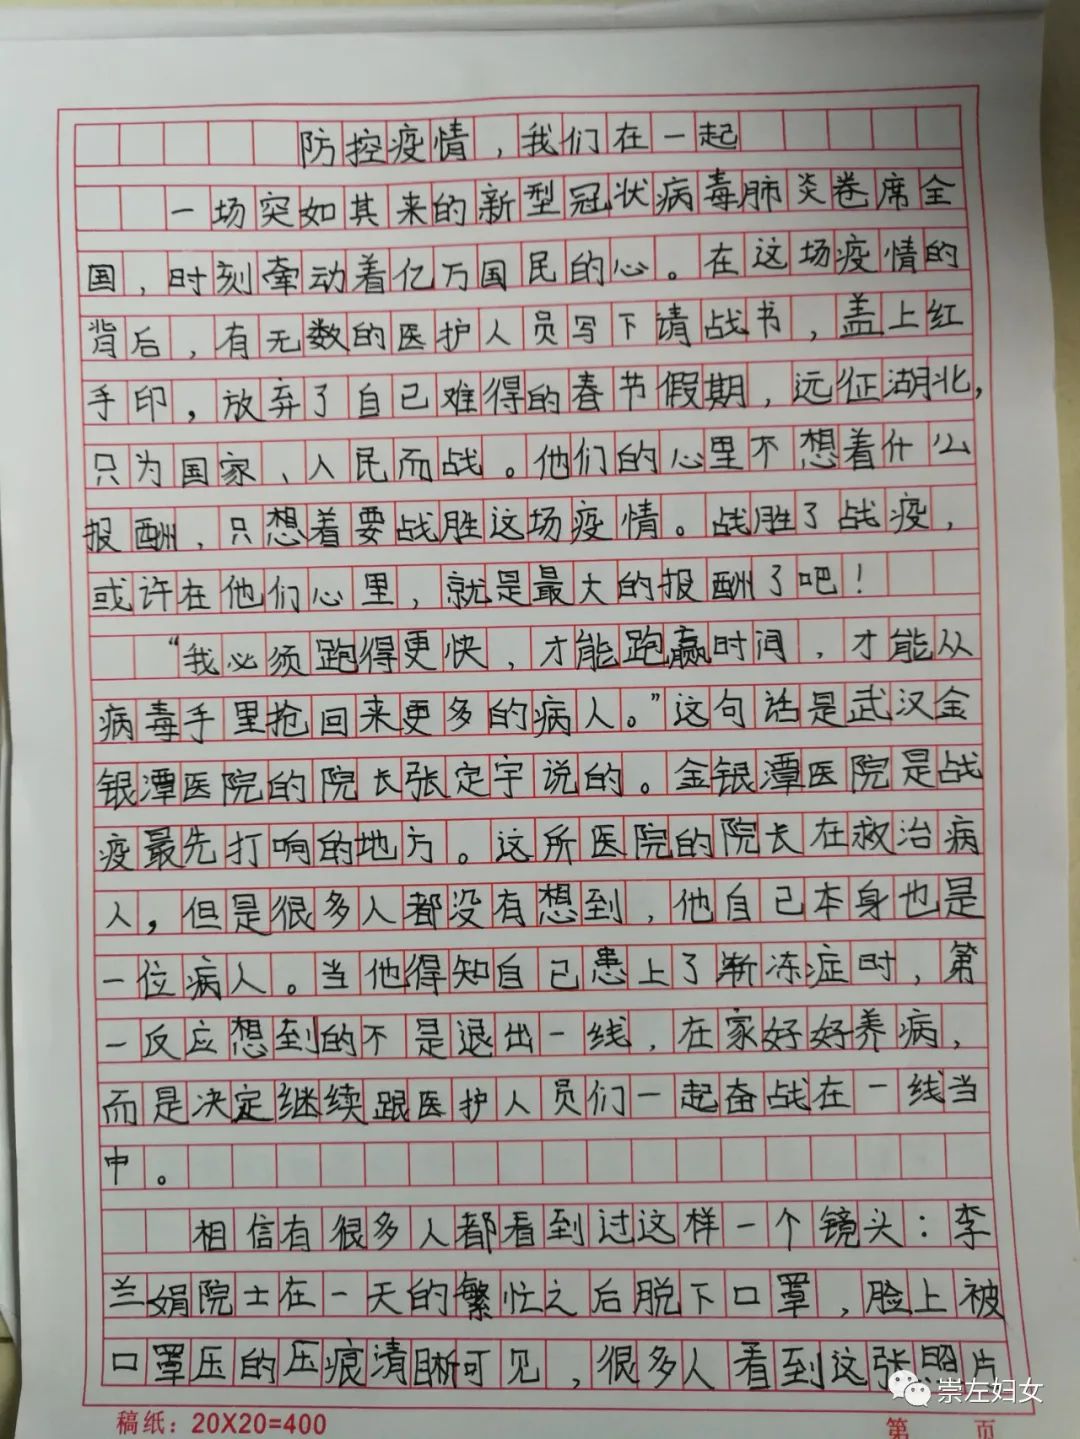 防控疫情，我们在一起
一场突如其来的新型冠状病毒肺炎卷席全
国，时刻牵动着亿万国民的心。在这场疫情的
背后，有无数的医护人员写下请战书，盖上红
手印，放弃了自己难得的春节假期，远征湖北，
只为国家、人民而战。他们的心里不想着什么
报酬，只想着要战胜这场疫情。战胜了战疫，
或许在他们心里，就是最大的报酬了吧！
“我必须跑得更快，才能跑赢时间，才能从
病毒手里抢回来更多的病人。”这句话是武汉金
银潭医院的院长张定宇说的。金银潭医院是战
疫最先打响的地方。这所医院的院长在救治病
人，但是很多人都没有想到，他自己本身也是
一位病人。当他得知自己患上了渐冻症时，第
一反应想到的不是退出一线，在家好好养病，
而是决定继续跟医护人员们一起奋战在一线当
中。
相信有很多人都看到过这样一个镜头：李
兰娟院士在一天的繁忙之后脱下口罩，脸上被
口罩压的压痕清晰可见，很多人看到这张照片
崇左妇女
稿纸：20X20=400
第 页